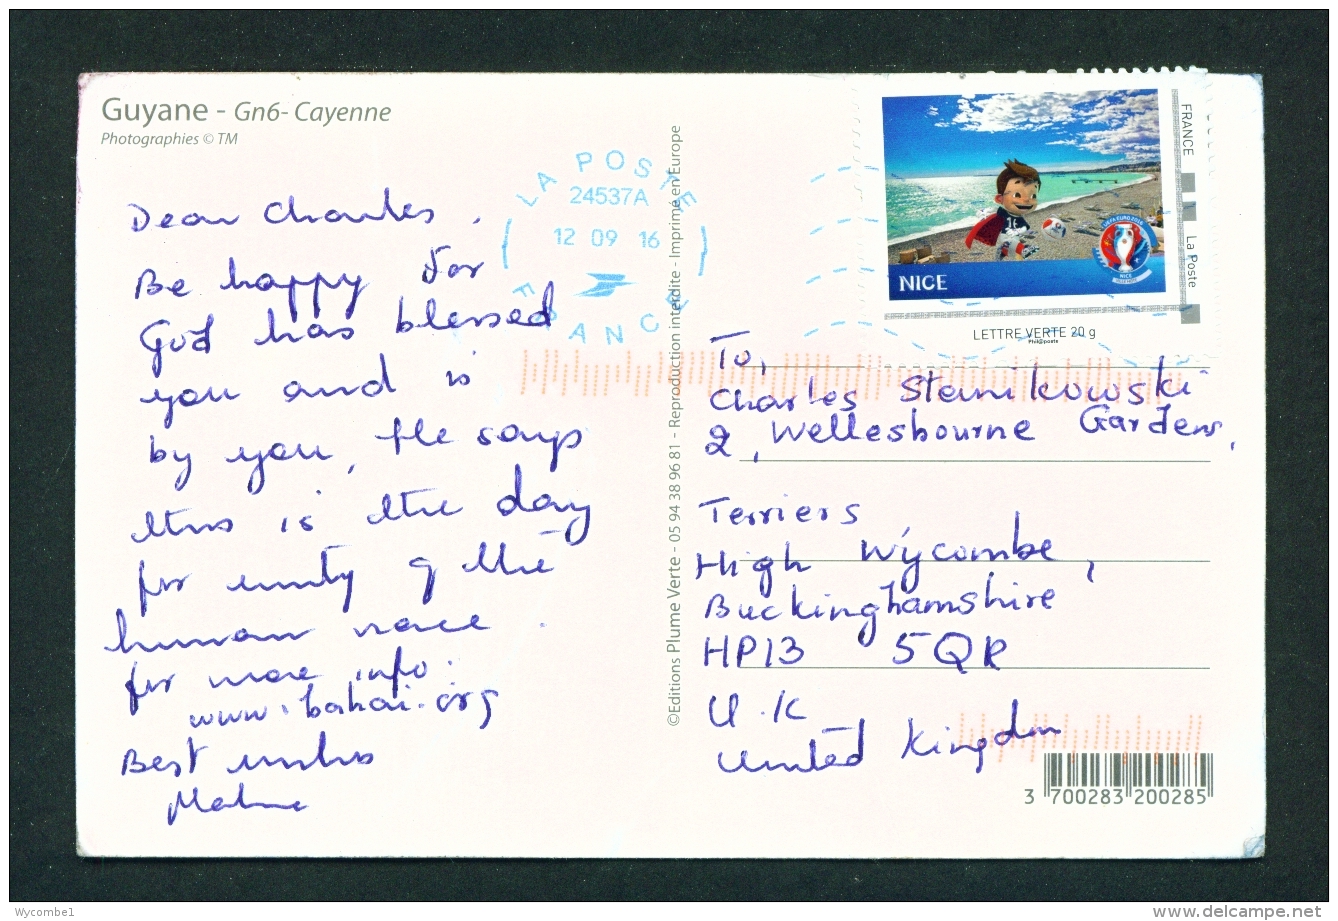 Guyane - Gn6- Cayenne
Photographies © TM
Dear Charles,
Be happy for
God has blessed
you and is
by you, He says
this is the day
for unity of the
human race.
for more info:
www.bahai.org
Best wishes
LA POSTE
24537A
12 09 16
FRANCE
©Editions Plume Verte - 05 94 38 96 81 - Reproduction interdite - Imprimé en Europe
NICE
UEFA EURO 2016
NICE
16
FRANCE
La Poste
LETTRE VERTE 20 g
Phil@poste
To,
Charles Stanikowski
2, Wellesbourne Gardens,
Terriers,
High Wycombe,
Buckinghamshire
HP13 5QR
U.K
United Kingdom
3 700283 200285
Wycombe1
www.delcampe.net